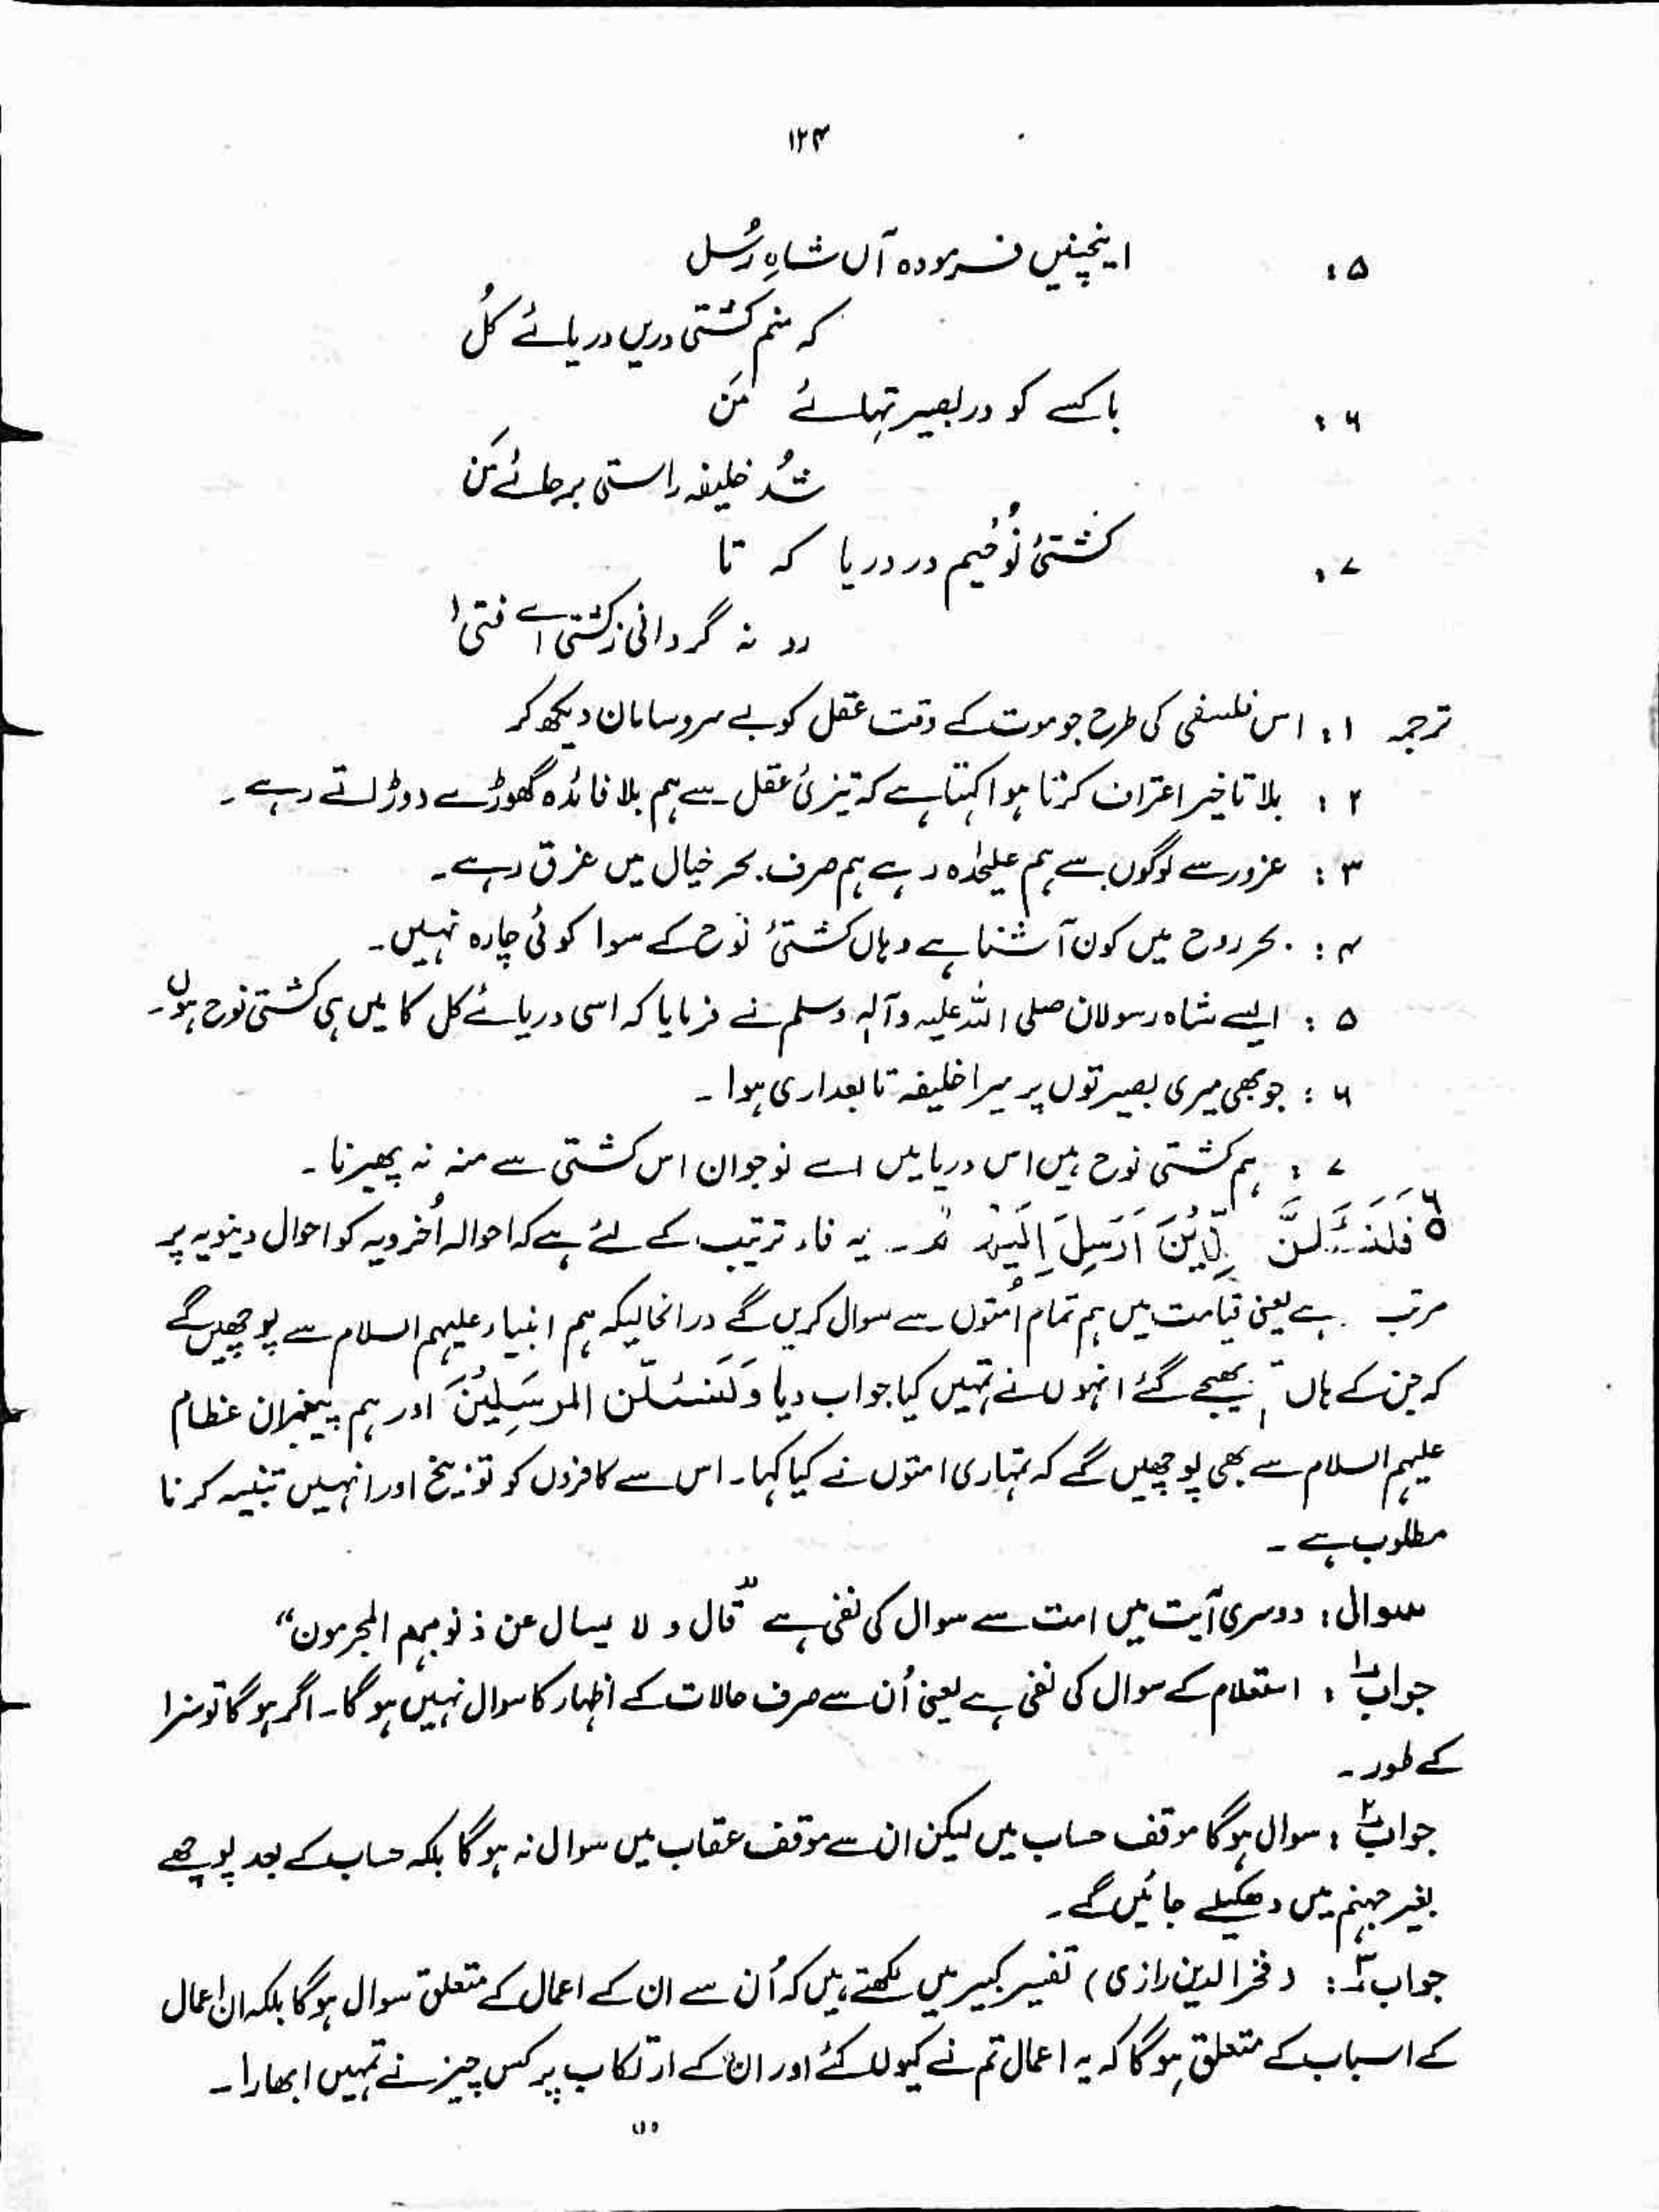 ۱۲۴
۵: اینچنیں فرمودہ آں شاہِ رُسل
کہ منم کشتی دریں دریائے کُل
۶: باکسے کو در بصیرتہائے مَن
شُد خلیفہ راستی برجائے مَن
۷: کشتیٔ نُوحیم در دریا کہ تا
رو نہ گردانی زکشتی اے فتیٰ
ترجمہ ۱: اس فلسفی کی طرح جو موت کے وقت عقل کو بے سروسامان دیکھ کر
۲: بلا تاخیر اعتراف کرتا ہوا کہتا ہے کہ تیزیٔ عقل سے ہم بلا فائدہ گھوڑے دوڑاتے رہے۔
۳: غرور سے لوگوں سے ہم علیحٰدہ رہے ہم صرف بحر خیال میں غرق رہے۔
۴: بحر روح میں کون آشنا ہے وہاں کشتیٔ نوح کے سوا کوئی چارہ نہیں۔
۵: ایسے شاہ رسولان صلی اللہ علیہ وآلہٖ وسلم نے فرمایا کہ اسی دریائے کل کا میں ہی کشتی نوح ہوں۔
۶: جو بھی میری بصیرتوں پر میرا خلیفہ تابعداری ہوا۔
۷: ہم کشتی نوح ہیں اس دریا میں اے نوجوان اس کشتی سے منہ نہ پھیرنا۔
فَلَنَسْئَلَنَّ الَّذِیْنَ اُرْسِلَ اِلَیْهِمْ۔ یہ فاء ترتیب کے لئے ہے کہ احوالہ اُخرویہ کو احوال دینویہ پر
مرتب ہے یعنی قیامت میں ہم تمام اُمتوں سے سوال کریں گے درانحالیکہ ہم انبیاء علیہم السلام سے پوچھیں گے
کہ جن کے ہاں بھیجے گئے انہوں نے تمہیں کیا جواب دیا وَلَنَسْئَلَنَّ المرسَلِیْنَ اور ہم پیغمبران عظام
علیہم السلام سے بھی پوچھیں گے کہ تمہاری امتوں نے کیا کہا۔ اس سے کافروں کو توزیخ اور انہیں تنبیہ کرنا
مطلوب ہے۔
سوال: دوسری آیت میں امت سے سوال کی نفی ہے ”قال و لا یسال عن ذنوبہم المجرمون“
جواب ۱: استعلام کے سوال کی نفی ہے یعنی اُن سے صرف حالات کے اظہار کا سوال نہیں ہوگا۔ اگر ہوگا تو سزا
کے طور۔
جواب ۲: سوال ہوگا موقف حساب میں لیکن ان سے موقف عقاب میں سوال نہ ہوگا بلکہ حساب کے بعد پوچھے
بغیر جہنم میں دھکیلے جائیں گے۔
جواب ۳: (فخرالدین رازی) تفسیر کبیر میں لکھتے ہیں کہ اُن سے ان کے اعمال کے متعلق سوال ہوگا بلکہ ان اعمال
کے اسباب کے متعلق ہوگا کہ یہ اعمال تم نے کیوں کئے اور ان کے ارتکاب پر کس چیز نے تمہیں ابھارا۔